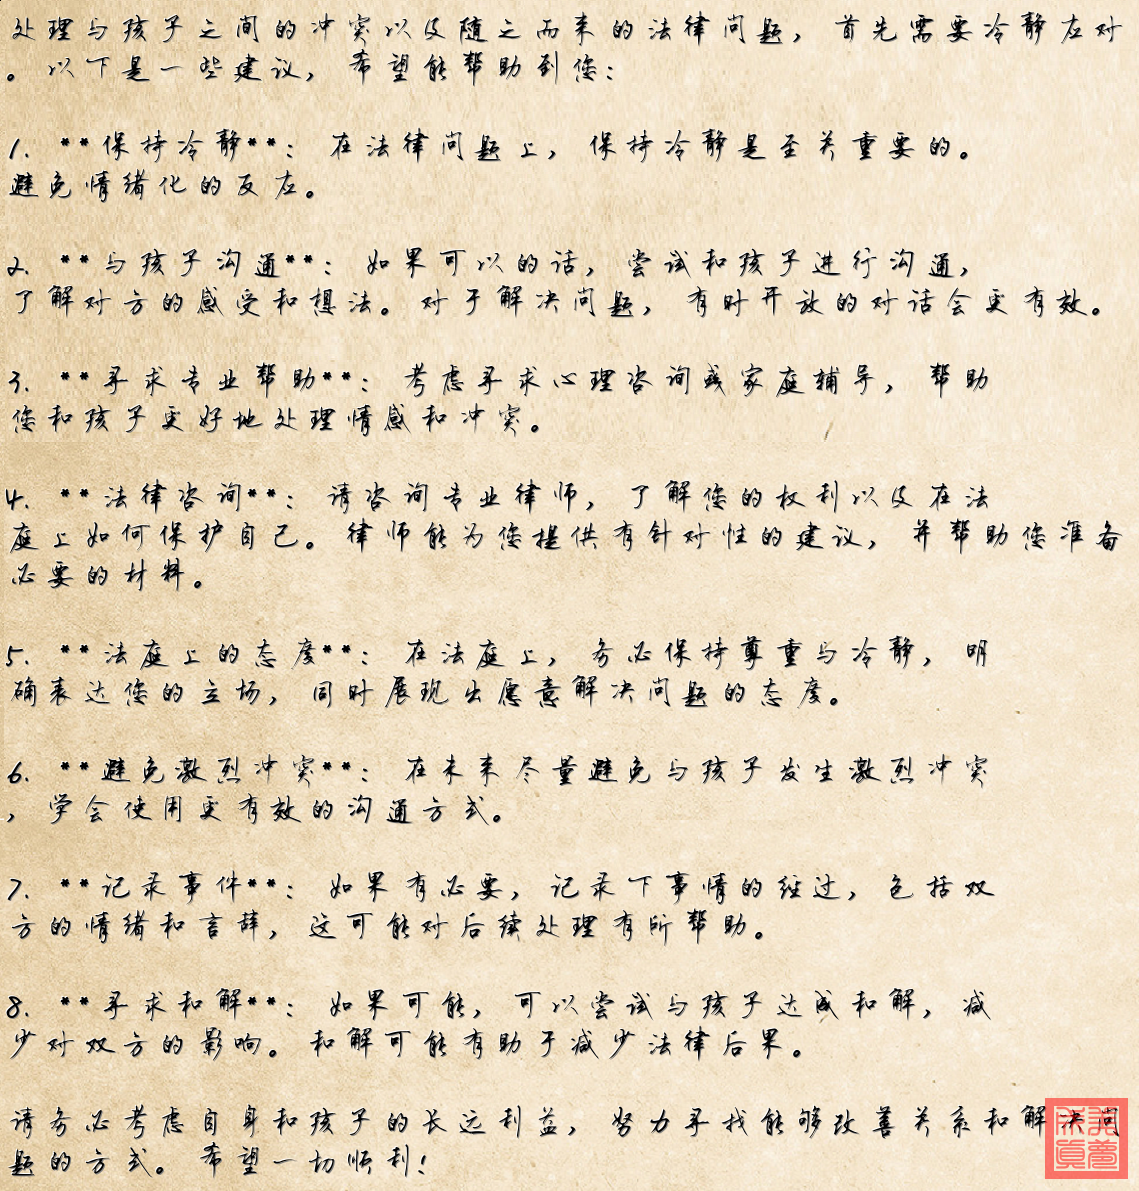 处理与孩子之间的冲突以及随之而来的法律问题，首先需要冷静应对
。以下是一些建议，希望能帮助到您：
1. **保持冷静**：在法律问题上，保持冷静是至关重要的。
避免情绪化的反应。
2. **与孩子沟通**：如果可以的话，尝试和孩子进行沟通，
了解对方的感受和想法。对于解决问题，有时开放的对话会更有效。
3. **寻求专业帮助**：考虑寻求心理咨询或家庭辅导，帮助
您和孩子更好地处理情感和冲突。
4. **法律咨询**：请咨询专业律师，了解您的权利以及在法
庭上如何保护自己。律师能为您提供有针对性的建议，并帮助您准备
必要的材料。
5. **法庭上的态度**：在法庭上，务必保持尊重与冷静，明
确表达您的立场，同时展现出愿意解决问题的态度。
6. **避免激烈冲突**：在未来尽量避免与孩子发生激烈冲突
，学会使用更有效的沟通方式。
7. **记录事件**：如果有必要，记录下事情的经过，包括双
方的情绪和言辞，这可能对后续处理有所帮助。
8. **寻求和解**：如果可能，可以尝试与孩子达成和解，减
少对双方的影响。和解可能有助于减少法律后果。
请务必考虑自身和孩子的长远利益，努力寻找能够改善关系和解决问
题的方式。希望一切顺利！